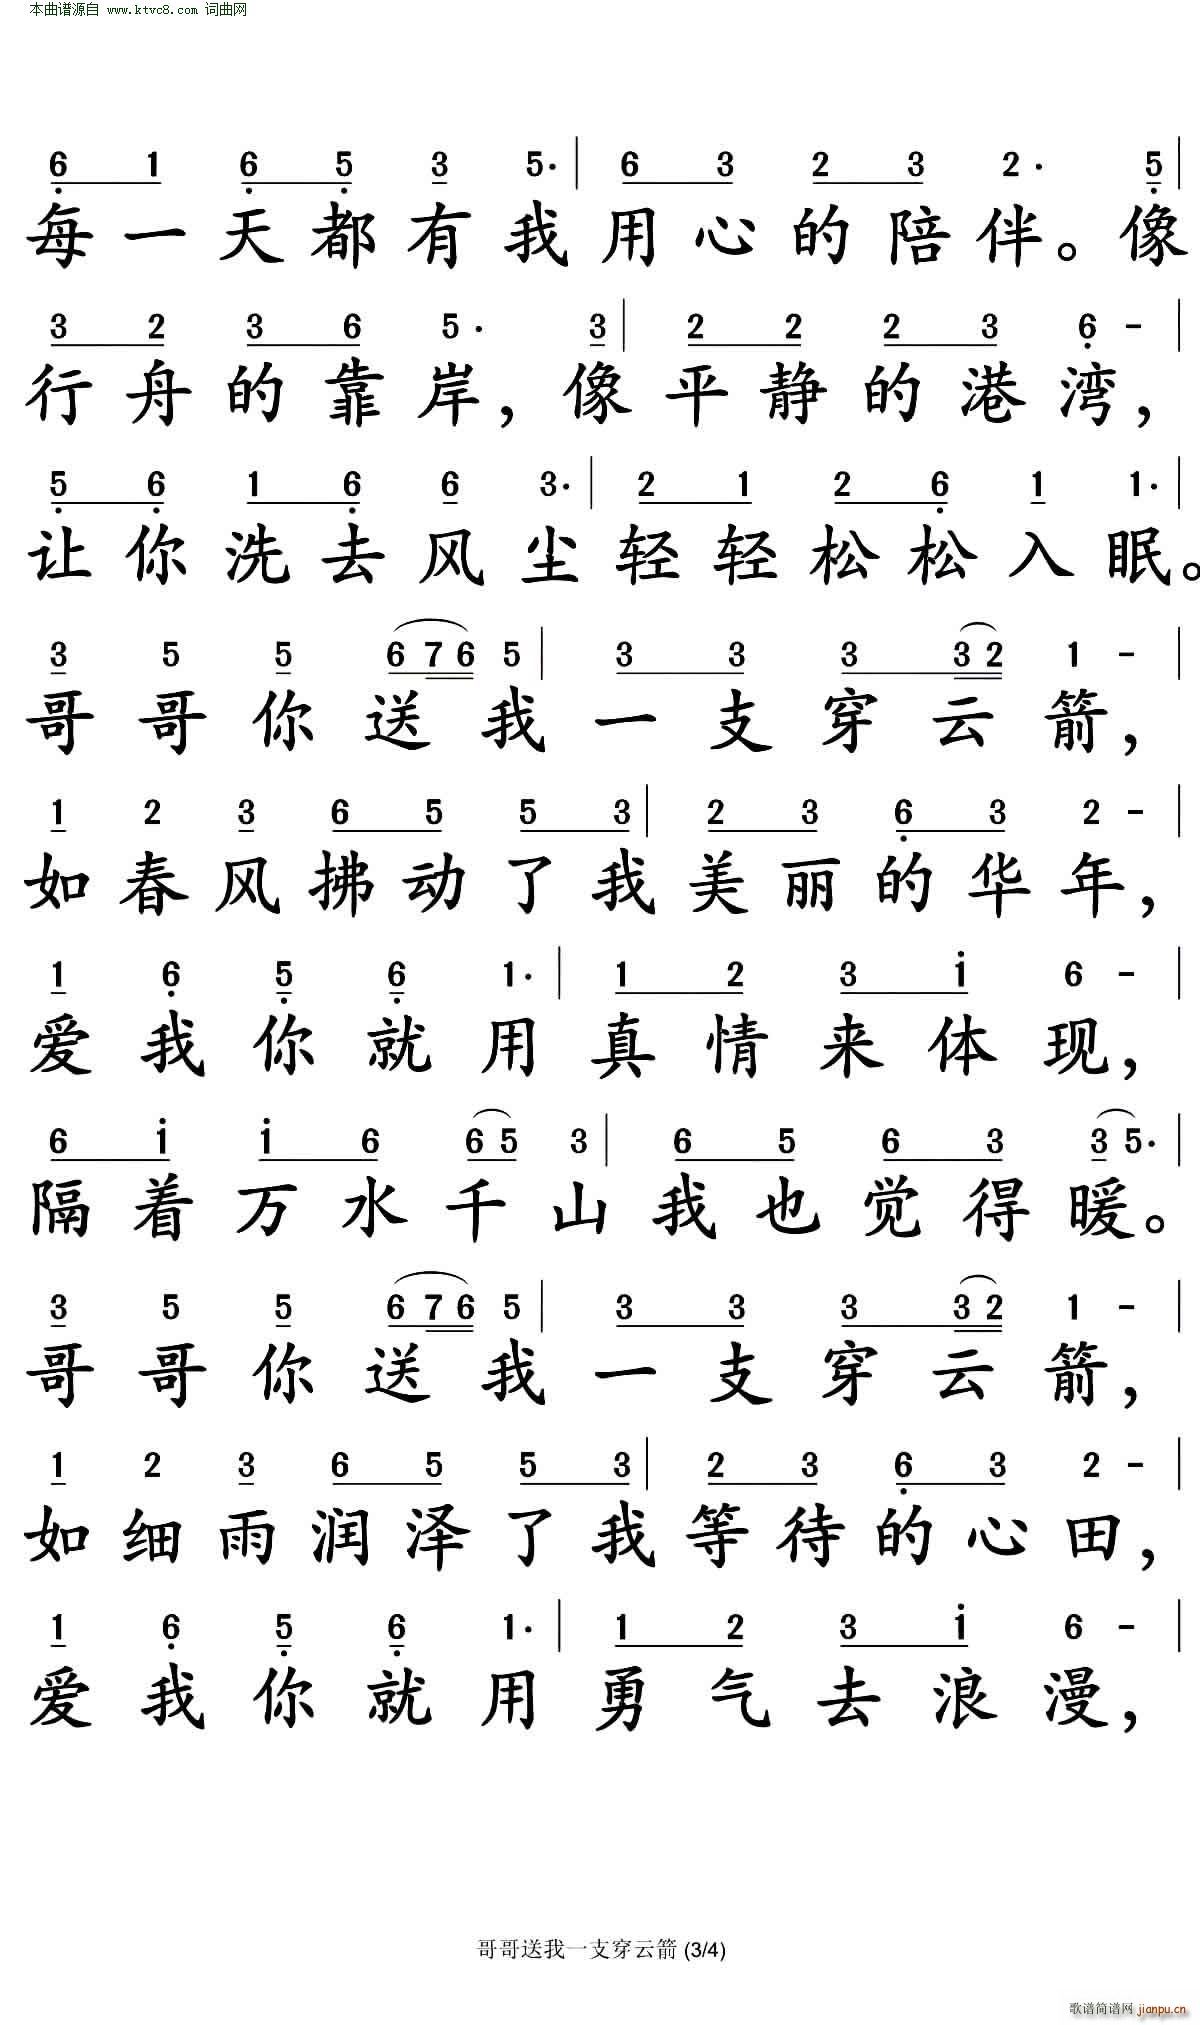 本曲谱源自 www.ktvc8.com 词曲网
6̣ 1 6̣ 5̣ 3 5· | 6 3 2 3 2· 5̣ |
每一天都有我用心的陪伴。像
3 2 3 6 5· 3 | 2 2 2 3 6̣ - |
行舟的靠岸，像平静的港湾，
5̣ 6̣ 1 6̣ 6 3· | 2 1 2 6̣ 1 1· |
让你洗去风尘轻轻松松入眠。
3 5 5 6 7 6 5 | 3 3 3 3 2 1 - |
哥哥你送我一支穿云箭，
1 2 3 6 5 5 3 | 2 3 6̣ 3 2 - |
如春风拂动了我美丽的华年，
1 6̣ 5̣ 6̣ 1· | 1 2 3 i 6 - |
爱我你就用真情来体现，
6 i i 6 6 5 3 | 6 5 6 3 3 5· |
隔着万水千山我也觉得暖。
3 5 5 6 7 6 5 | 3 3 3 3 2 1 - |
哥哥你送我一支穿云箭，
1 2 3 6 5 5 3 | 2 3 6̣ 3 2 - |
如细雨润泽了我等待的心田，
1 6̣ 5̣ 6̣ 1· | 1 2 3 i 6 - |
爱我你就用勇气去浪漫，
哥哥送我一支穿云箭 (3/4)
歌谱简谱网 jianpu.cn